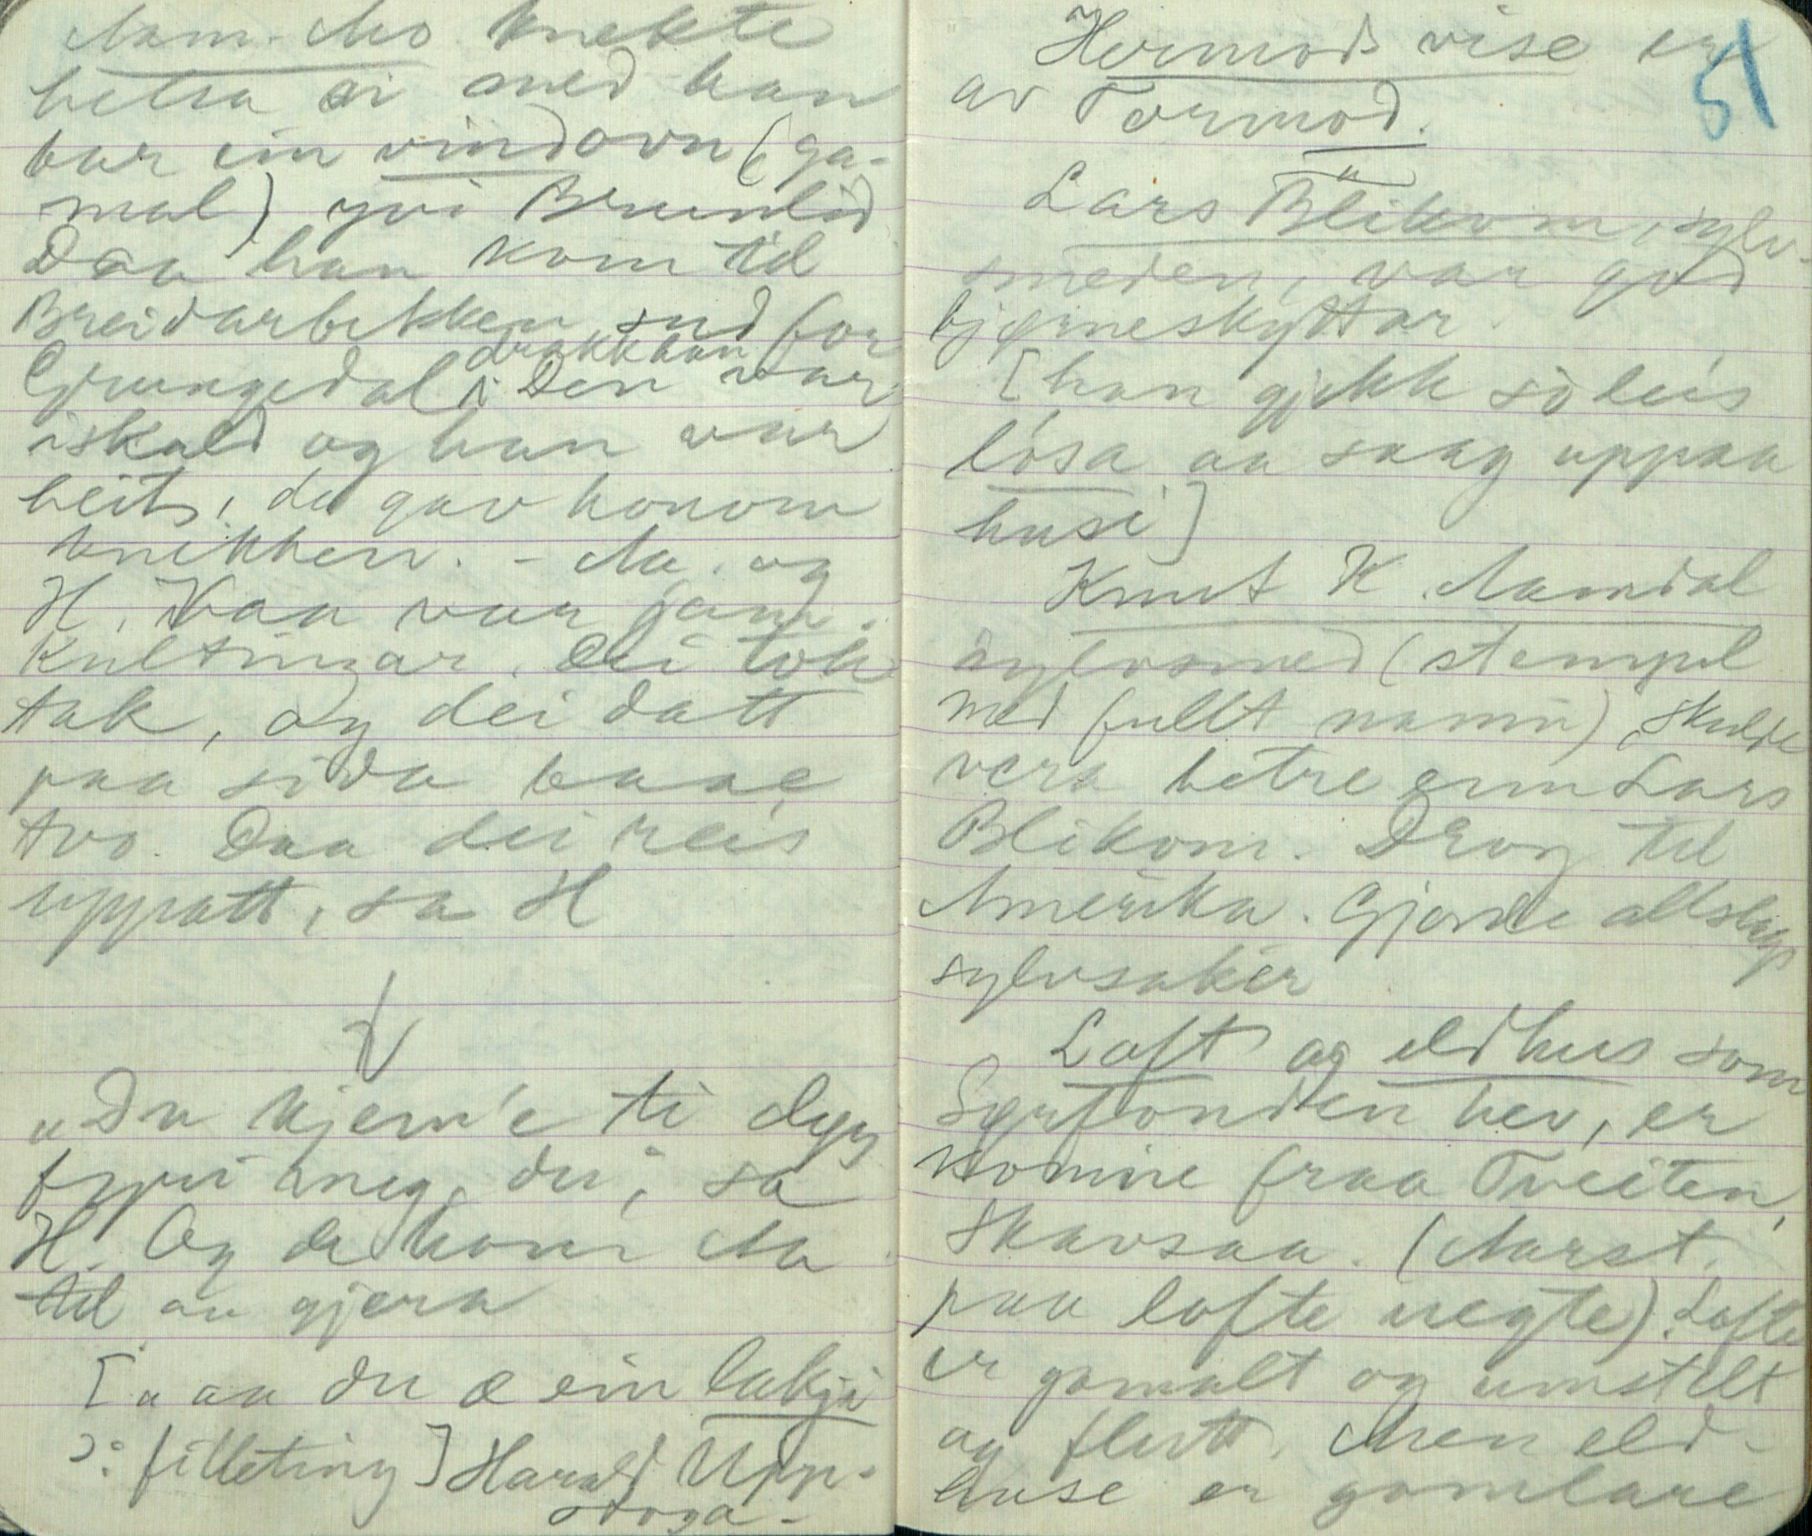 Aam. Aas. knekte
helsa si med han
bar ein vindovn (ga-
mal) yvi Brunlid
Daa han kom til
Breidarbekken sud for
Grungedal, drakk han i Den var
iskald og han var
heit, de gav honom
knikken. – Aa. og
H. Vaa var jamn-
kultingar. Dei tok
tak, og dei datt
paa sida baae
tvo. Daa dei reis
uppatt, sa H
"Du kjem'e ti
fyri meg, du", sa
H. Og de kom Aa
til aa gjera
["aa du æ ein lakji
ɔ: filleting] Harald Upp-
stoga.
51
Hermods vise er
av Tormod.
Lars Blikom, sylv-
smeden, var god
bjørneskyttar.
[han gjekk so leis
ljosa aa saag uppaa
husi]
Knut K. Aamdal
sylvsmed (stempel
med fullt namn), skulde
vera betre enn Lars
Blikom. Drog til
Amerika. Gjorde allslags
sylvsaker
Loft og eldhus som
Syrfonden hev, er
komne fraa Tveiten,
Skavsaa. (Aarst.
paa lofte uegte). Lofte
er gamalt og umstelt
og flutt. Men eld-
huse er gamlare